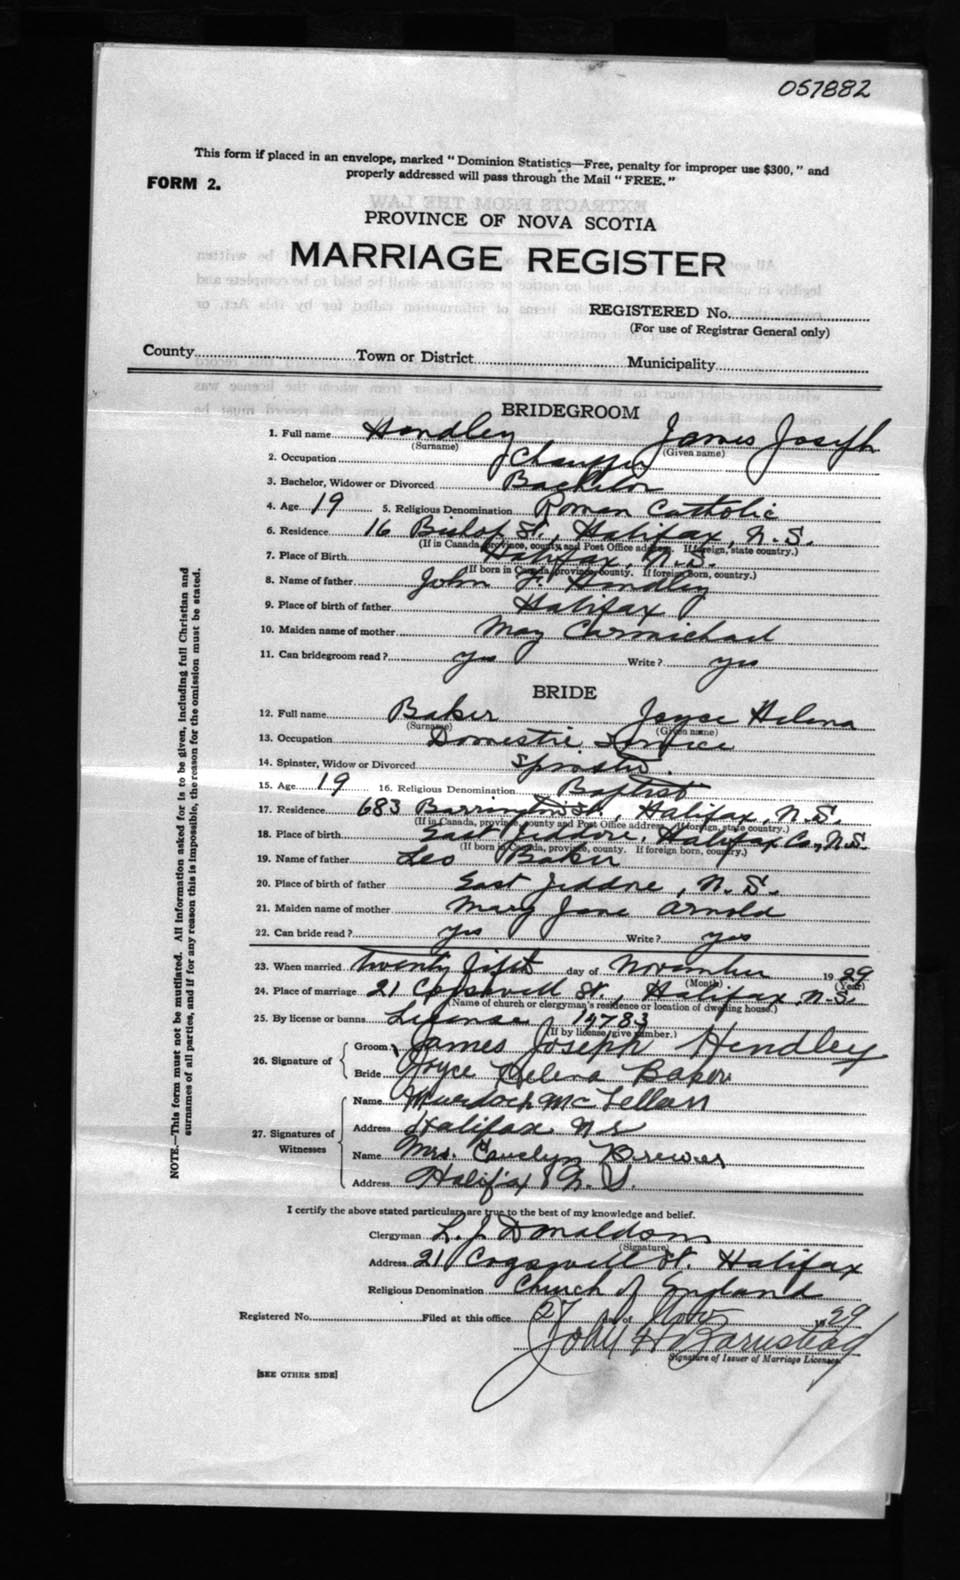 057882
This form if placed in an envelope, marked "Dominion Statistics—Free, penalty for improper use $300," and
properly addressed will pass through the Mail "FREE."
FORM 2.
PROVINCE OF NOVA SCOTIA
MARRIAGE REGISTER
REGISTERED No.
(For use of Registrar General only)
County Town or District Municipality
BRIDEGROOM
1. Full name Handley James Joseph
(Surname) (Given name)
2. Occupation
3. Bachelor, Widower or Divorced Bachelor
4. Age 19 5. Religious Denomination Roman Catholic
6. Residence 16 Bishop St., Halifax, N.S.
(If in Canada, province, county and Post Office address. If foreign, state country.)
7. Place of Birth Halifax, N.S.
(If born in Canada, province, county. If foreign born, country.)
8. Name of father John F. Handley
9. Place of birth of father Halifax
10. Maiden name of mother May Carmichael
11. Can bridegroom read? yes Write? yes
BRIDE
12. Full name Baker Joyce Helena
(Surname) (Given name)
13. Occupation Domestic Service
14. Spinster, Widow or Divorced
15. Age 19 16. Religious Denomination Baptist
17. Residence 683 Barrington St., Halifax, N.S.
(If in Canada, province, county and Post Office address. If foreign, state country.)
18. Place of birth East Jeddore, Halifax Co., N.S.
(If born in Canada, province, county. If foreign born, country.)
19. Name of father Leo Baker
20. Place of birth of father East Jeddore, N.S.
21. Maiden name of mother Mary Jane Arnold
22. Can bride read? yes Write? yes
23. When married twenty fifth day of November 1929
(Month) (Year)
24. Place of marriage 21 Cogswell St., Halifax, N.S.
(Name of church or clergyman's residence or location of dwelling house.)
25. By license or banns License 14783
(If by license, give number.)
26. Signature of Groom James Joseph Hendley
Bride Joyce Helena Baker
27. Signatures of Witnesses
Name Murdoch McLellan
Address Halifax N S
Name Mrs. Evelyn Brewer
Address Halifax N. S.
I certify the above stated particulars are true to the best of my knowledge and belief.
Clergyman L. J. Donaldson
(Signature)
Address 21 Cogswell St. Halifax
Religious Denomination Church of England
Registered No. Filed at this office 27 day of Nov 1929
John H Barnstead
Signature of Issuer of Marriage Licenses
[SEE OTHER SIDE]
NOTE.—This form must not be mutilated. All information asked for is to be given, including full Christian and
surnames of all parties, and if for any reason this is impossible, the reason for the omission must be stated.